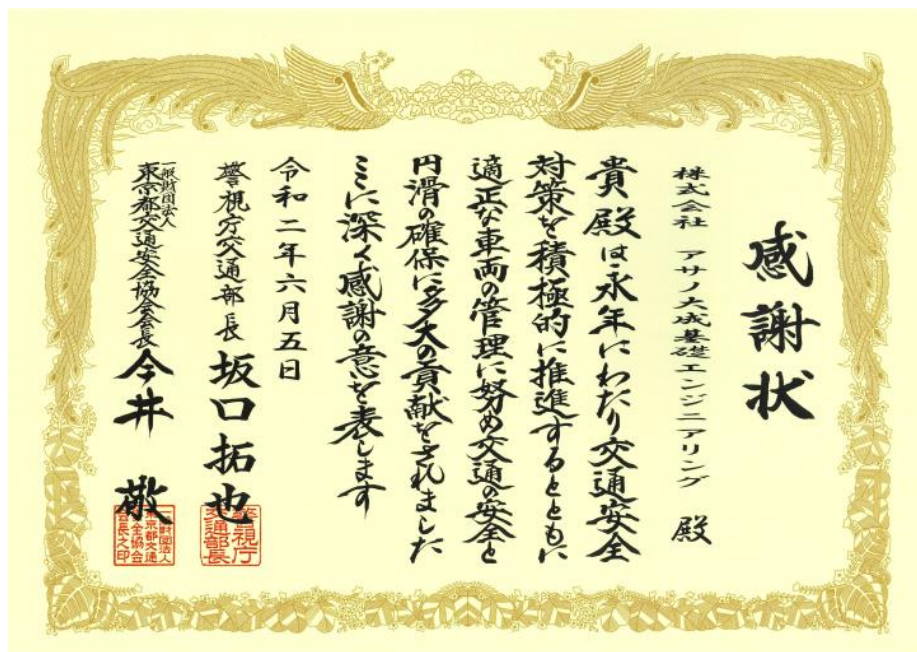 感謝状
株式会社 アサノ大成基礎エンジニアリング 殿
貴殿は永年にわたり交通安全
対策を積極的に推進するとともに
適正な車両の管理に努め交通の安全と
円滑の確保に多大の貢献をされました
ここに深く感謝の意を表します
令和二年六月五日
警視庁交通部長 坂口拓也
警視庁
交通部長
一般財団法人
東京都交通安全協会会長 今井 敬
一般財団法人
東京都交通
安全協会
会長之印